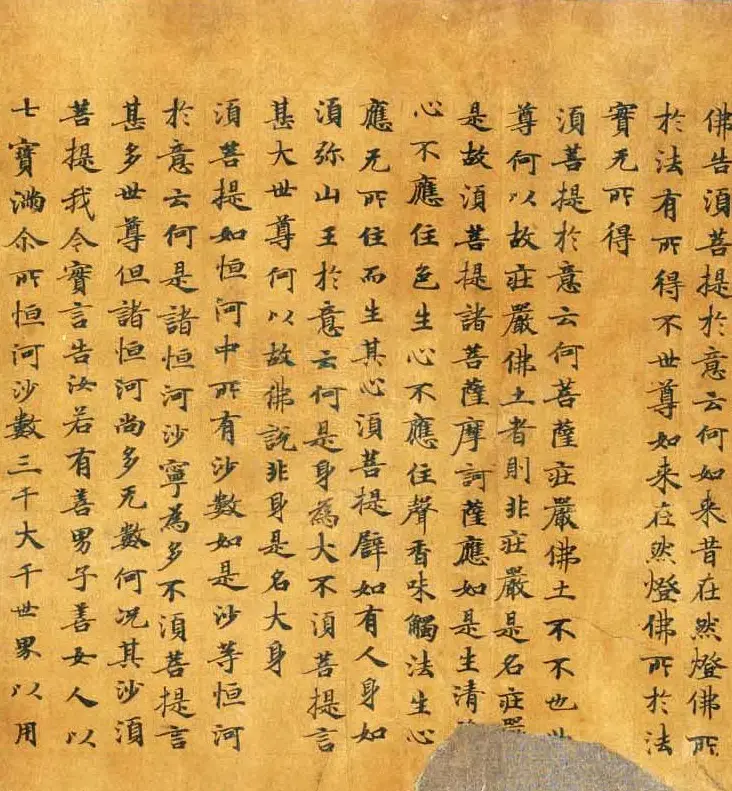 佛告湏菩提於意云何如来昔在然燈佛所
於法有所得不世尊如来在然燈佛所於法
實无所得
湏菩提於意云何菩薩莊嚴佛土不不也世
尊何以故莊嚴佛土者則非莊嚴是名莊嚴
是故湏菩提諸菩薩摩訶薩應如是生清
心不應住色生心不應住聲香味觸法生心
應无所住而生其心湏菩提譬如有人身如
湏弥山王於意云何是身為大不湏菩提言
甚大世尊何以故佛說非身是名大身
湏菩提如恒河中所有沙數如是沙等恒河
於意云何是諸恒河沙寧為多不湏菩提言
甚多世尊但諸恒河尚多无數何况其沙湏
菩提我今實言告汝若有善男子善女人以
七寶滿尒所恒河沙數三千大千世界以用